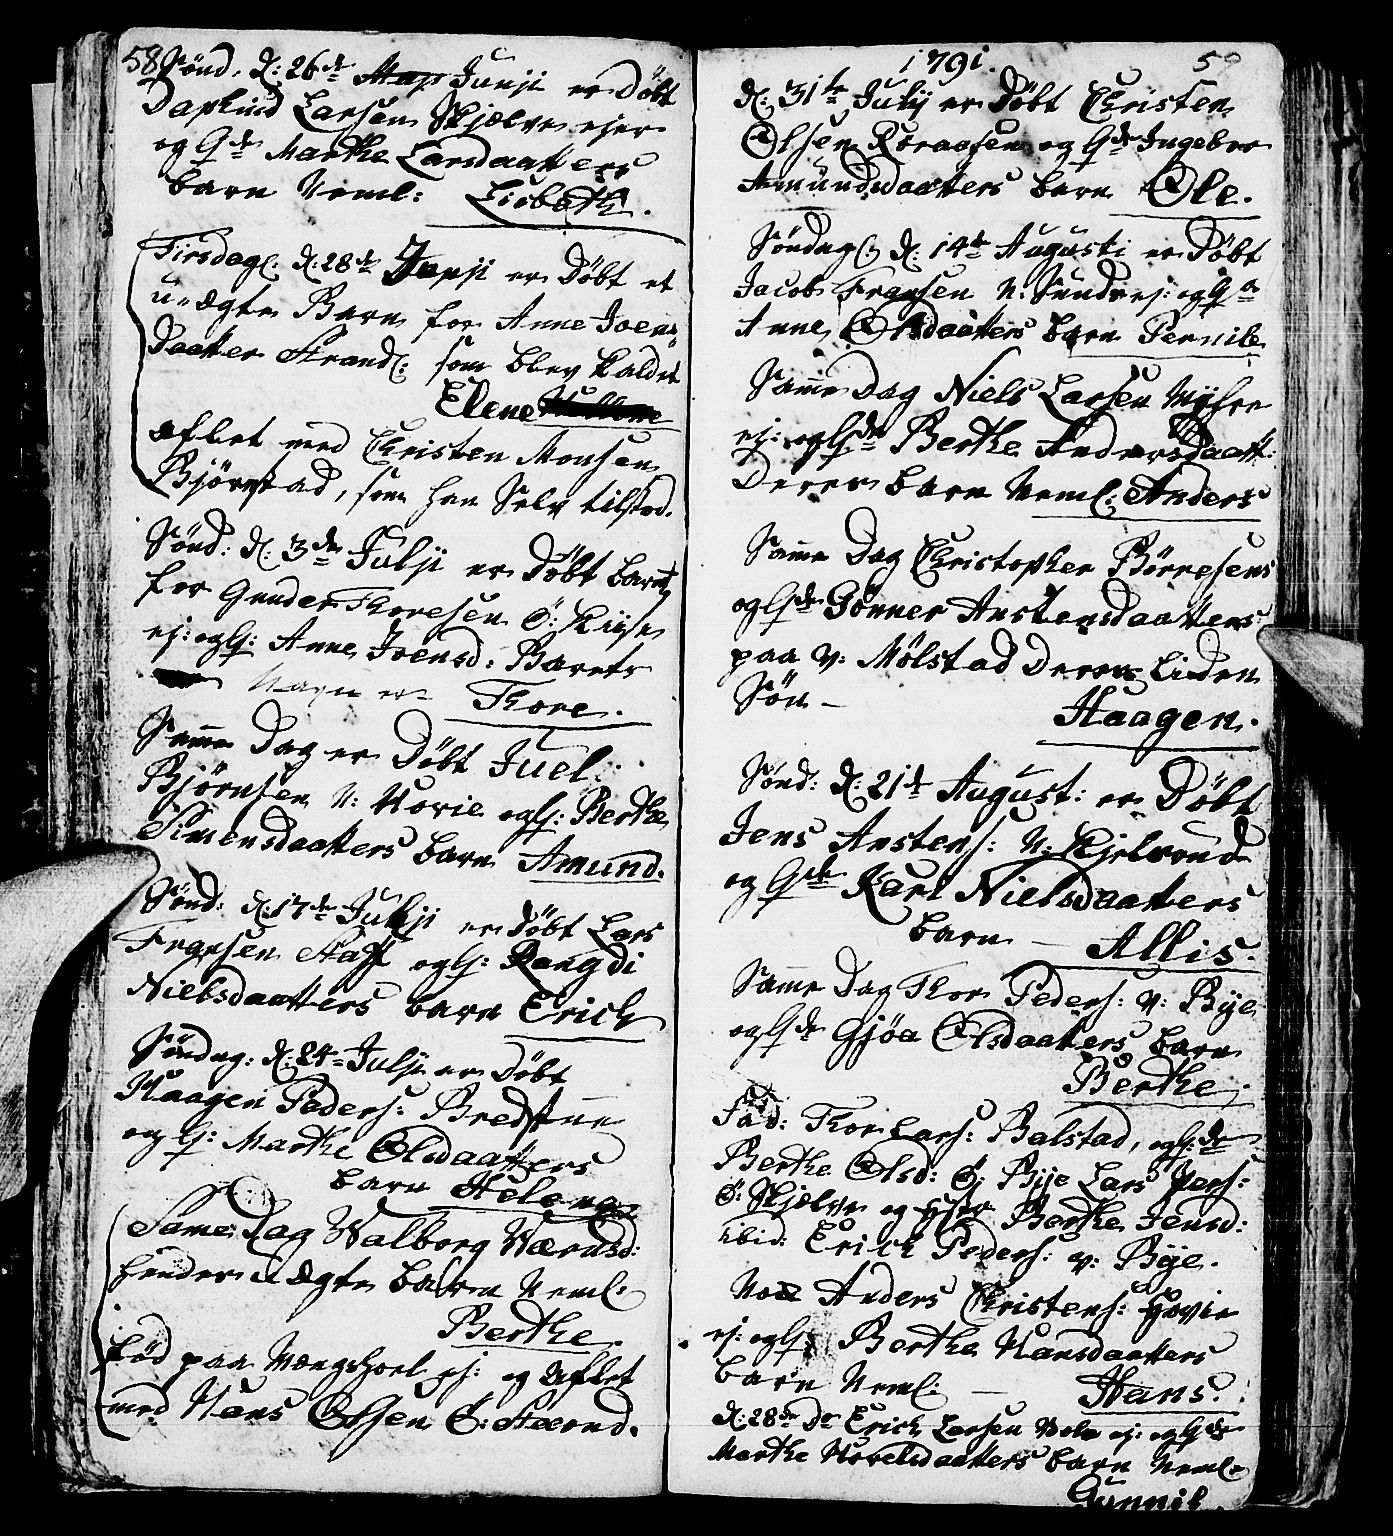 58
Sønd. d: 26de Maji Junji er Døbt
Daphind Larsen Skjælve ejer
og Gde Marthe Larsdaatters
barn Neml: Lisbeth.
Tirsdag. d: 28de Junji er Døbt et
u-ægte Barn for Anne Joens
daatter Strand: som blev kaldet
Elene
aflet med Christen Monsen
Bjørstad, som hun Selv tilstod.
Sønd: d: 3de Julji er Døbt barnet
for Gunder Thoresen Ø: Kiise
ej: og G: Anne Joensd: Barnets
Nafn er Thore.
Samme Dag er Døbt Juel
Bjørnsen N: Hovie og G: Berthe
Simensdaatters barn Amund.
Sønd: d: 17de Julji er Døbt Lars
Fransen Staff og G: Rangdi
Nielsdaatters barn Erich
Søndag: d: 24 Julji er Døbt
Haagen Peders: Bredstue
og G: Marthe Olsdaatters
barn Helena
Same Dag Walborg Wærnsd:
hendes u-ægte barn Neml:
Berthe.
fød paa Wængshoel ej: og aflet
med Hans Olsen Ø: Stærud.
1791.
59
d: 31te Julij er Døbt Christen
Olsen Roraasen og Gde Ingebor
Amundsdaatters barn Ole.
Søndag. d: 14de Augusti er Døbt
Jacob Fransen N: Sundsej: og G
Anne Olsdaatters barn Pernile
Samme Dag Niels Larsen Myhre
ej: og Gde Berthe Andersdaatt:
Deres barn Neml: Anders
Samme Dag Christopher Børresens
og Gde Gønner Anstensdaatters
paa v: Mølstad Deres Liden
Søn – Haagen.
Sønd: d: 21de August: er Døbt
Jens Anstens: N: Kjelsrud
og Gde Kari Nielsdaatters
barn – Allis.
Samme Dag Thor Peders: v: Bye
og Gde Gjøa Olsdaatters barn
Berthe.
Fad: Thor Lars: Balstad, og G: de
Berthe Olsd: Ø: Bye Lars Pers:
Ø: Skjælve og Berthe Jensd:
ibid: Erich Peders: v: Bye.
Anders Christens: Hovie
ej: og G: Berthe Hansdaatters
barn Neml: – Hans.
d: 28de Do Erich Larsen ej: og Gde
Marthe Hovelsdaatters barn Neml:
Gunnil